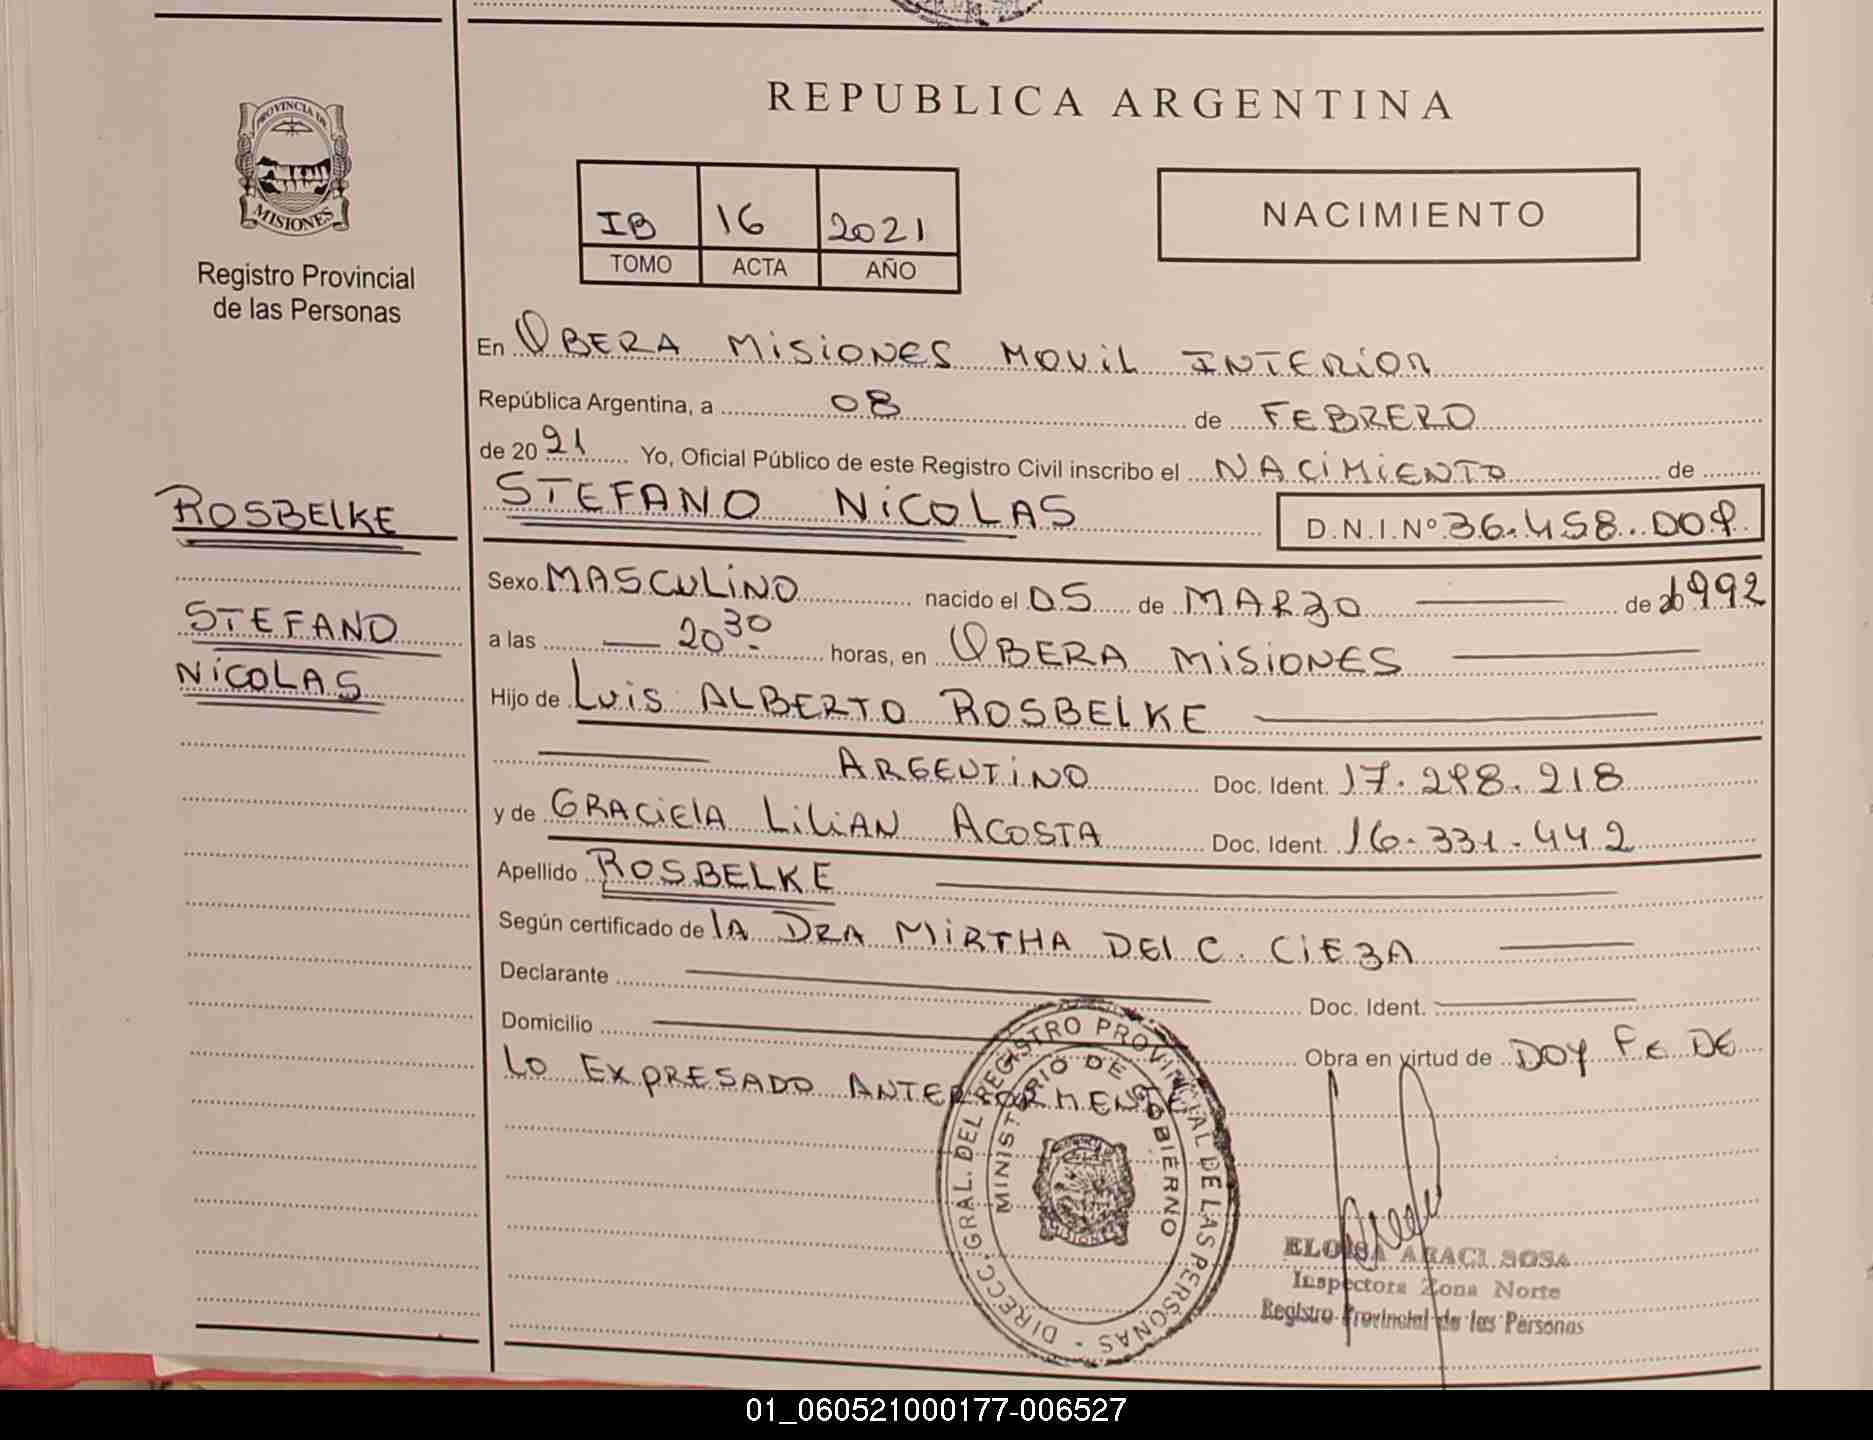 REPUBLICA ARGENTINA
PROVINCIA DE
MISIONES
Registro Provincial
de las Personas
IB 16 2021
TOMO ACTA AÑO
NACIMIENTO
En OBERA MISIONES MOVIL INTERIOR
República Argentina, a 08 de FEBRERO
de 2021 Yo, Oficial Público de este Registro Civil inscribo el NACIMIENTO de
ROSBELKE
STEFANO NICOLAS D.N.I.Nº 36.458.009
STEFANO
NICOLAS
Sexo MASCULINO nacido el 05 de MARZO de 1992
a las 20 30 horas, en OBERA MISIONES
Hijo de LUIS ALBERTO ROSBELKE
ARGENTINO Doc. Ident. 17.298.218
y de GRACIELA LILIAN ACOSTA Doc. Ident. 16.331.442
Apellido ROSBELKE
Según certificado de LA DRA MIRTHA DEL C. CIEZA
Declarante Doc. Ident.
Domicilio Obra en virtud de DOY FE DE
LO EXPRESADO ANTERIORMENTE
DIRECC. GRAL. DEL REGISTRO PROVINCIAL DE LAS PERSONAS -
MINISTERIO DE GOBIERNO
MISIONES
ELOISA ARACI SOSA
Inspectora Zona Norte
Registro Provincial de las Personas
01_060521000177-006527